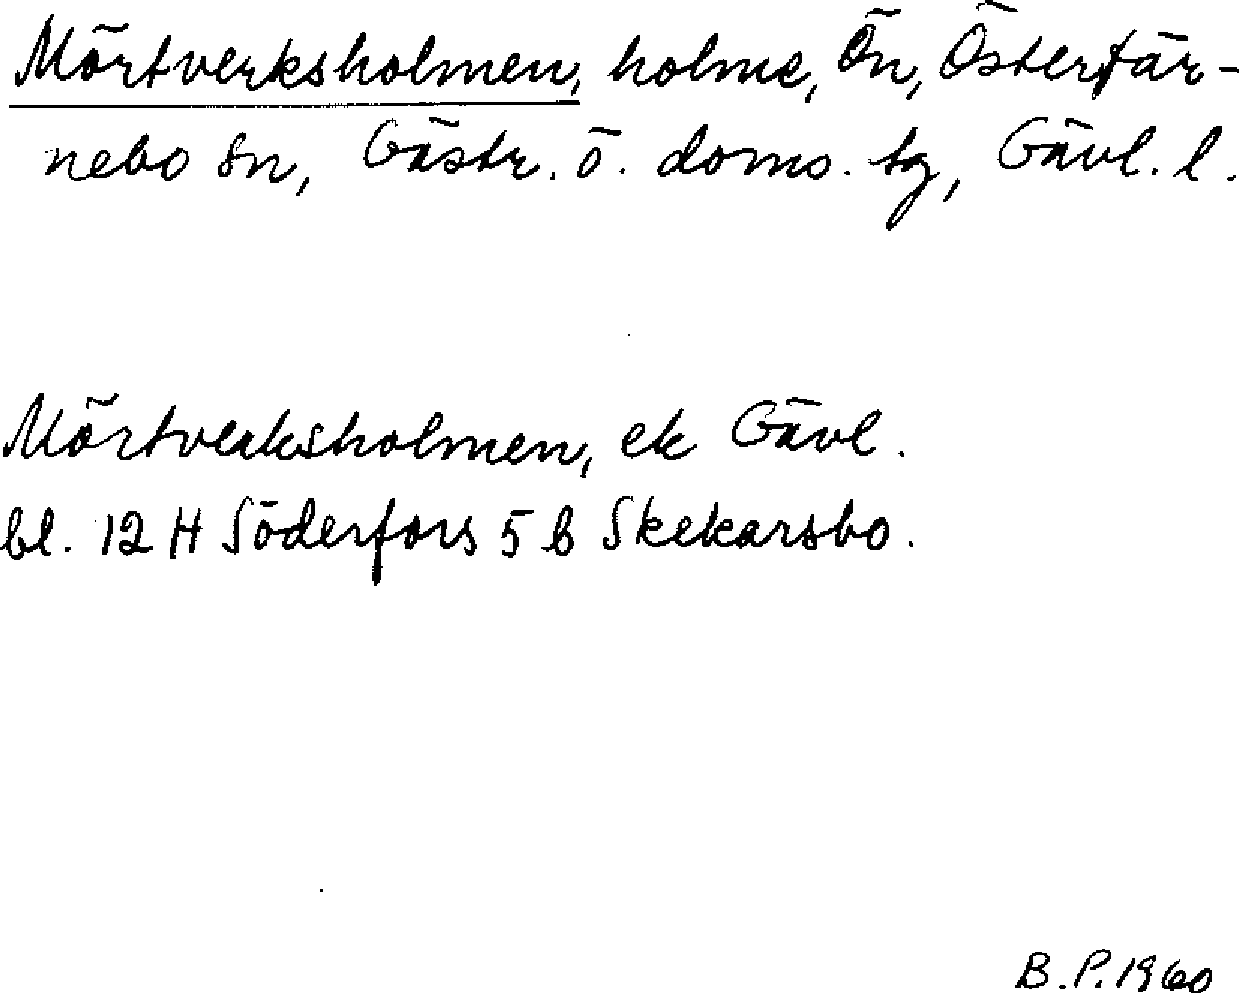 Mörtverksholmen, holme, Ön, Österfär-
nebo sn, Gästr. ö. doms. tg, Gävl. l.
Mörtverksholmen, ek Gävl.
bl. 12 H Söderfors 5 b Skekarsbo.
B.P. 1960